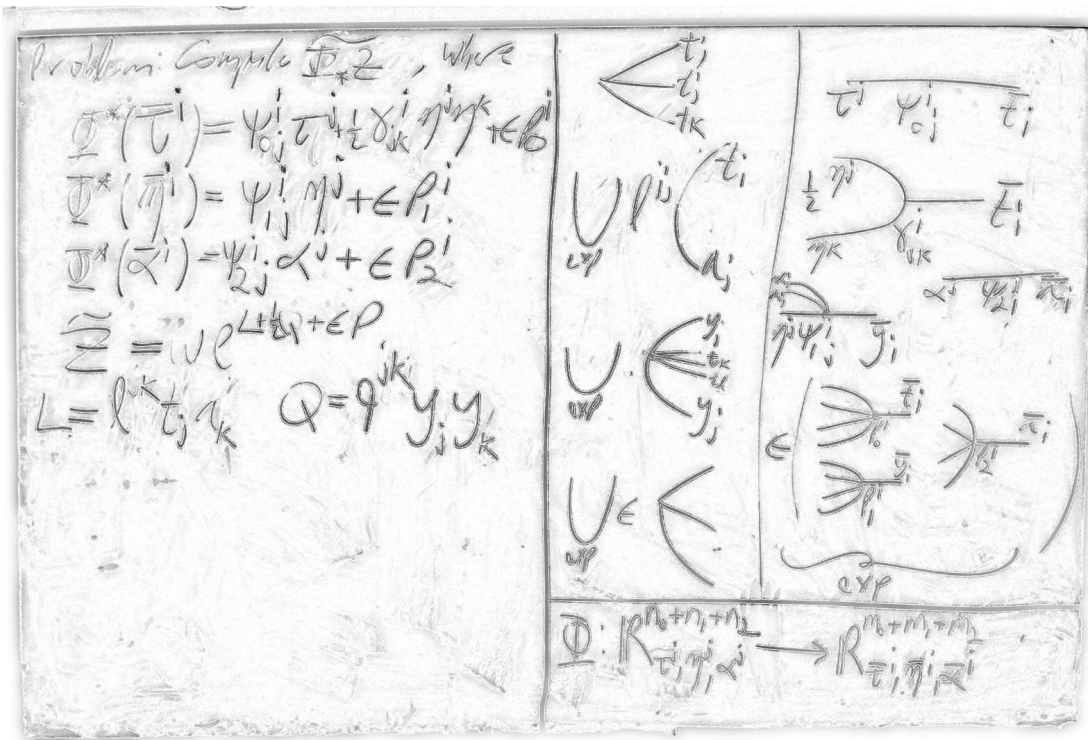 Problem: Compute \widetilde{Φ_* Z}, where
Φ^*(\bar{τ}^i) = ψ_{0j}^i τ^j + ½ γ_{jk}^i η^j η^k + ε P_0^i
Φ^*(\bar{η}^i) = ψ_{1j}^i η^j + ε P_1^i
Φ^*(\bar{α}^i) = ψ_{2j}^i α^j + ε P_2^i
= ω e^{L + ½Q + ε P}
L = l^{jk} t_j a_k   Q = q^{jk} y_j y_k
t_i
t_j
t_k
∪ l^{ij} t_i
exp a_j
y_i
t_k
∪ t_l
exp y_j
∪ ε
exp
τ^j ψ_{0j}^i \bar{t}_i
½ η^j \bar{t}_i
η^k γ_{jk}^i
α^j ψ_{2j}^i \bar{a}_i
η^j ψ_{1j}^i \bar{y}_i
ε P_0^i \bar{t}_i P_2^i \bar{a}_i
P_1^i \bar{y}_i
exp
Φ: R^{n_0+n_1+n_2}_{τ^j, η^j, α^j} → R^{m_0+m_1+m_2}_{\bar{τ}^i, \bar{η}^i, \bar{α}^i}